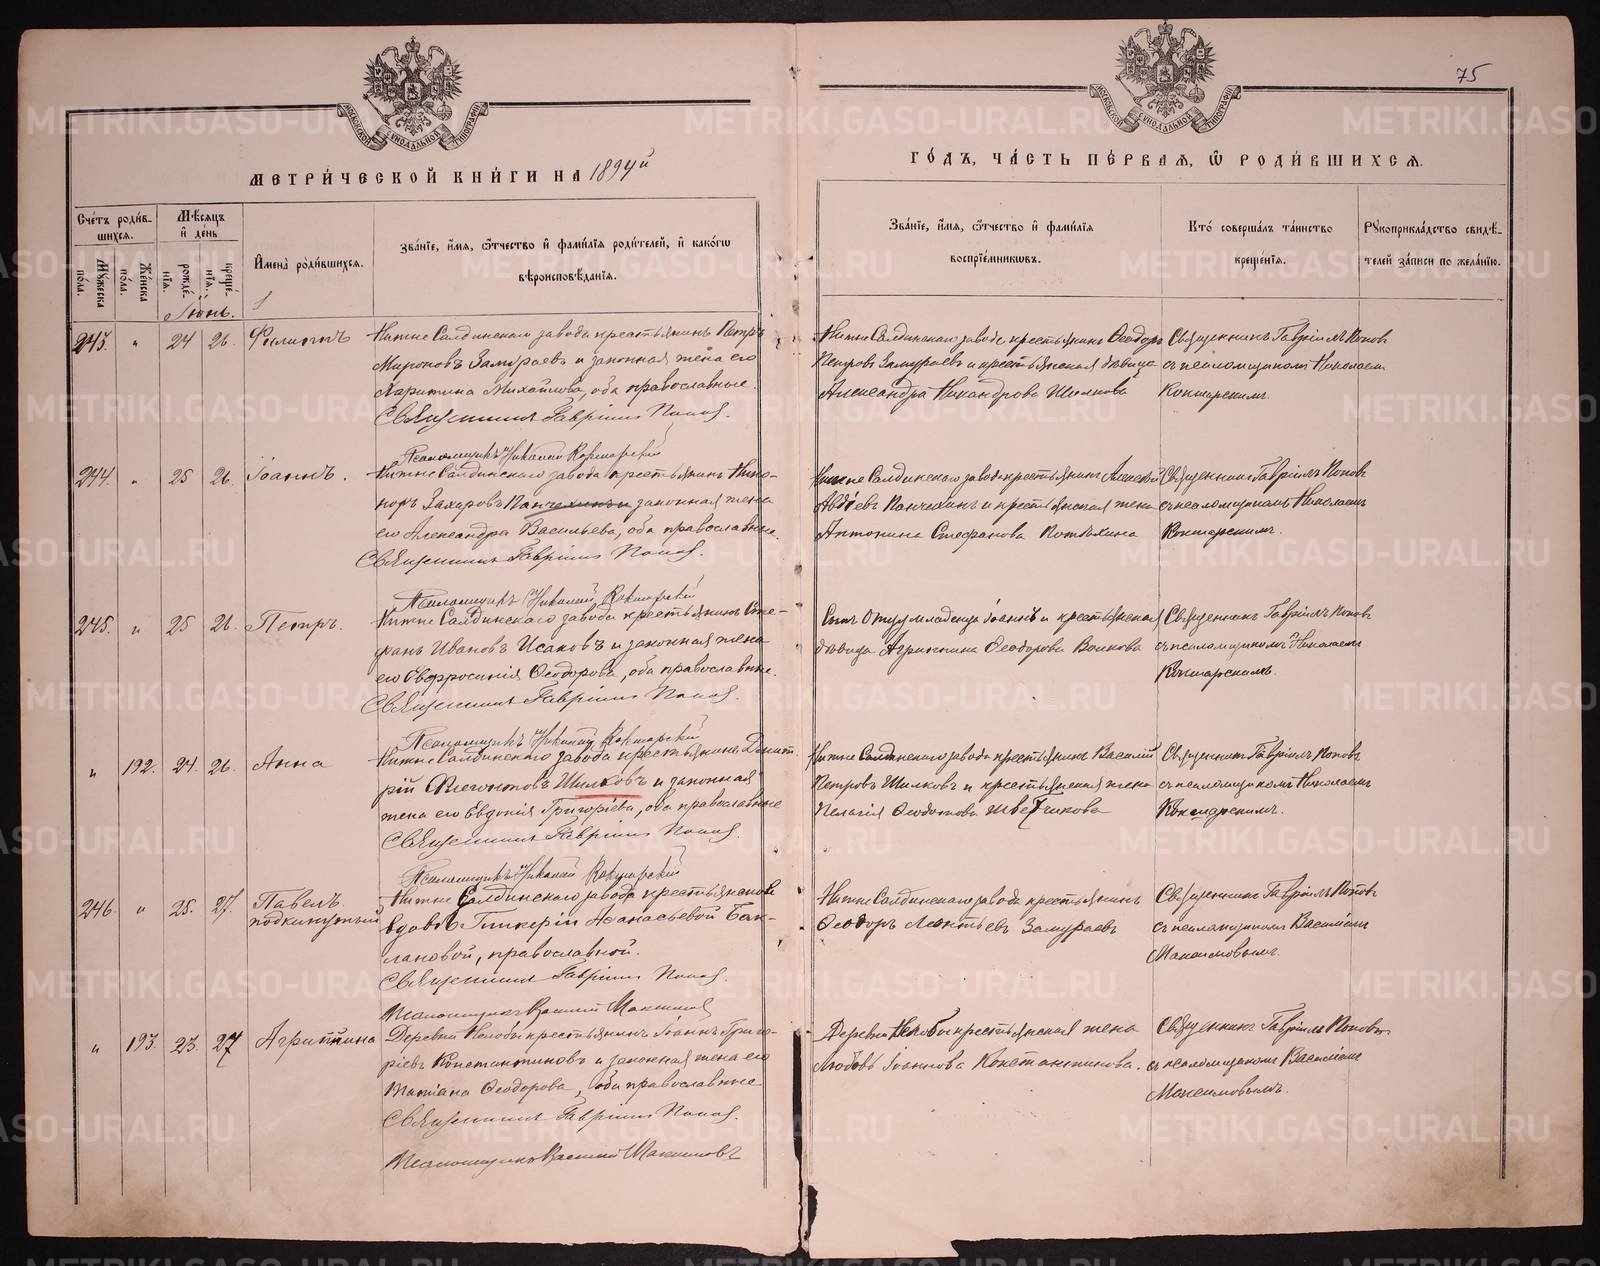 75
МОСКОВСКОЙ СѴНОДАЛЬНОЙ ТИПОГРАФІИ
МОСКОВСКОЙ СѴНОДАЛЬНОЙ ТИПОГРАФІИ
МЕТРИ́ЧЕСКОЙ КНИ́ГИ НА 1894й
ГО́ДЪ, ЧА́СТЬ ПЕ́РВАЯ, Ѽ РОДИ́ВШИХСЯ.
Счетъ роди́в-
шихся.
Мужеска пола.
Женска пола.
Мѣсяцъ
и день
рожде́нія.
креще́нія.
Имена роди́вшихся.
Зва́ніе, имя, ѻтчество и фамилія родителей, и како́гѡ
вѣроисповѣданія.
Зва́ніе, имя, ѻтчество и фамилія
воспріемниковъ.
Кто совершалъ таинство
крещенія.
Рукоприкладство свидѣ-
телей записи по желанію.
Іюнь.
243. " 24 26. Филиппъ
Нижне Салдинскаго завода крестьянинъ Петръ
Мироновъ Замураевъ и законная жена его
Харитина Михайлова, оба православные.
Священникъ Гавріилъ Поповъ.
Псаломщикъ Николай Кокшарскій
Нижне Салдинскаго завода крестьянинъ Ѳеодоръ
Петровъ Замураевъ и крестьянская дѣвица
Александра Никандрова Шилкова
Священникъ Гавріилъ Поповъ
съ псаломщикомъ Николаемъ
Кокшарскимъ.
244. " 25 26. Іоаннъ.
Нижне Салдинскаго завода крестьянинъ Ника-
норъ Захаровъ Панчехинъ и законная жена
его Александра Васильева, оба православные.
Священникъ Гавріилъ Поповъ.
Псаломщикъ Николай Кокшарскій
Нижне Салдинскаго завода крестьянинъ Алексѣй
Авдіевъ Панчехинъ и крестьянская жена
Антонина Стефанова Потѣхина
Священникъ Гавріилъ Поповъ
съ псаломщикомъ Николаемъ
Кокшарскимъ.
245. " 25 26. Петръ.
Нижне Салдинскаго завода крестьянинъ Сте-
фанъ Ивановъ Исаковъ и законная жена
его Евфросинія Ѳеодорова, оба православные.
Священникъ Гавріилъ Поповъ.
Псаломщикъ Николай Кокшарскій
младенца Іоаннъ и крестьянская
дѣвица Агриппина Ѳеодорова Волкова
Священникъ Гавріилъ Поповъ
съ псаломщикомъ Николаемъ
Кокшарскимъ.
" 192. 24. 26. Анна
Нижне Салдинскаго завода крестьянинъ Димит-
рій Флегонтовъ Шилковъ и законная
жена его Евдокія Григоріева, оба православные
Священникъ Гавріилъ Поповъ.
Псаломщикъ Николай Кокшарскій
Нижне Салдинскаго завода крестьянинъ Василій
Петровъ Шилковъ и крестьянская жена
Пелагія Ѳеодотова
Священникъ Гавріилъ Поповъ
съ псаломщикомъ Николаемъ
Кокшарскимъ.
246. " 25. 27. Павелъ
подкинутый
Нижне Салдинскаго завода крестьянской
вдовѣ Гликеріи Аѳанасьевой Бак-
лановой, православной.
Священникъ Гавріилъ Поповъ.
Псаломщикъ Василій Максимовъ
Нижне Салдинскаго завода крестьянинъ
Ѳеодоръ Леонтьевъ Замураевъ
Священникъ Гавріилъ Поповъ
съ псаломщикомъ Василіемъ
Максимовымъ.
" 193. 23. 27 Агриппина
Деревни Нелобы крестьянинъ Іоаннъ Григо-
ріевъ Константиновъ и законная жена его
Татіана Ѳеодорова, оба православные
Священникъ Гавріилъ Поповъ.
Псаломщикъ Василій Максимовъ
Деревни Нелобы крестьянская жена
Любовь Іоаннова Константинова.
Священникъ Гавріилъ Поповъ
съ псаломщикомъ Василіемъ
Максимовымъ.
METRIKI.GASO-URAL.RU